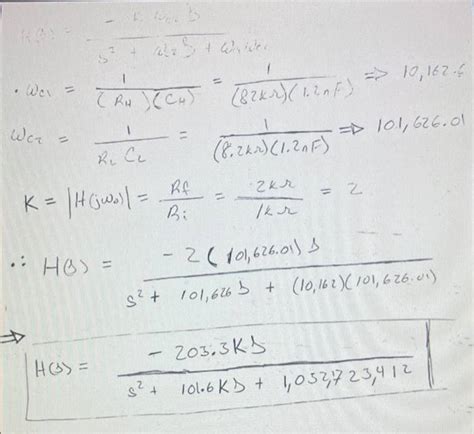 H(s) = - K ωc2 s
s² + ωc2 s + ωc1ωc2
• ωc1 = 1 / (RH)(CH) = 1 / (82kΩ)(1.2nF) => 10,162.6
ωc2 = 1 / RL CL = 1 / (8.2kΩ)(1.2nF) => 101,626.01
K = |H(jω0)| = Rf / Ri = 2kΩ / 1kΩ = 2
∴ H(s) = - 2 (101,626.01) s
s² + 101,626 s + (10,162)(101,626.01)
=>
H(s) = - 203.3K s
s² + 101.6K s + 1,032,723,412